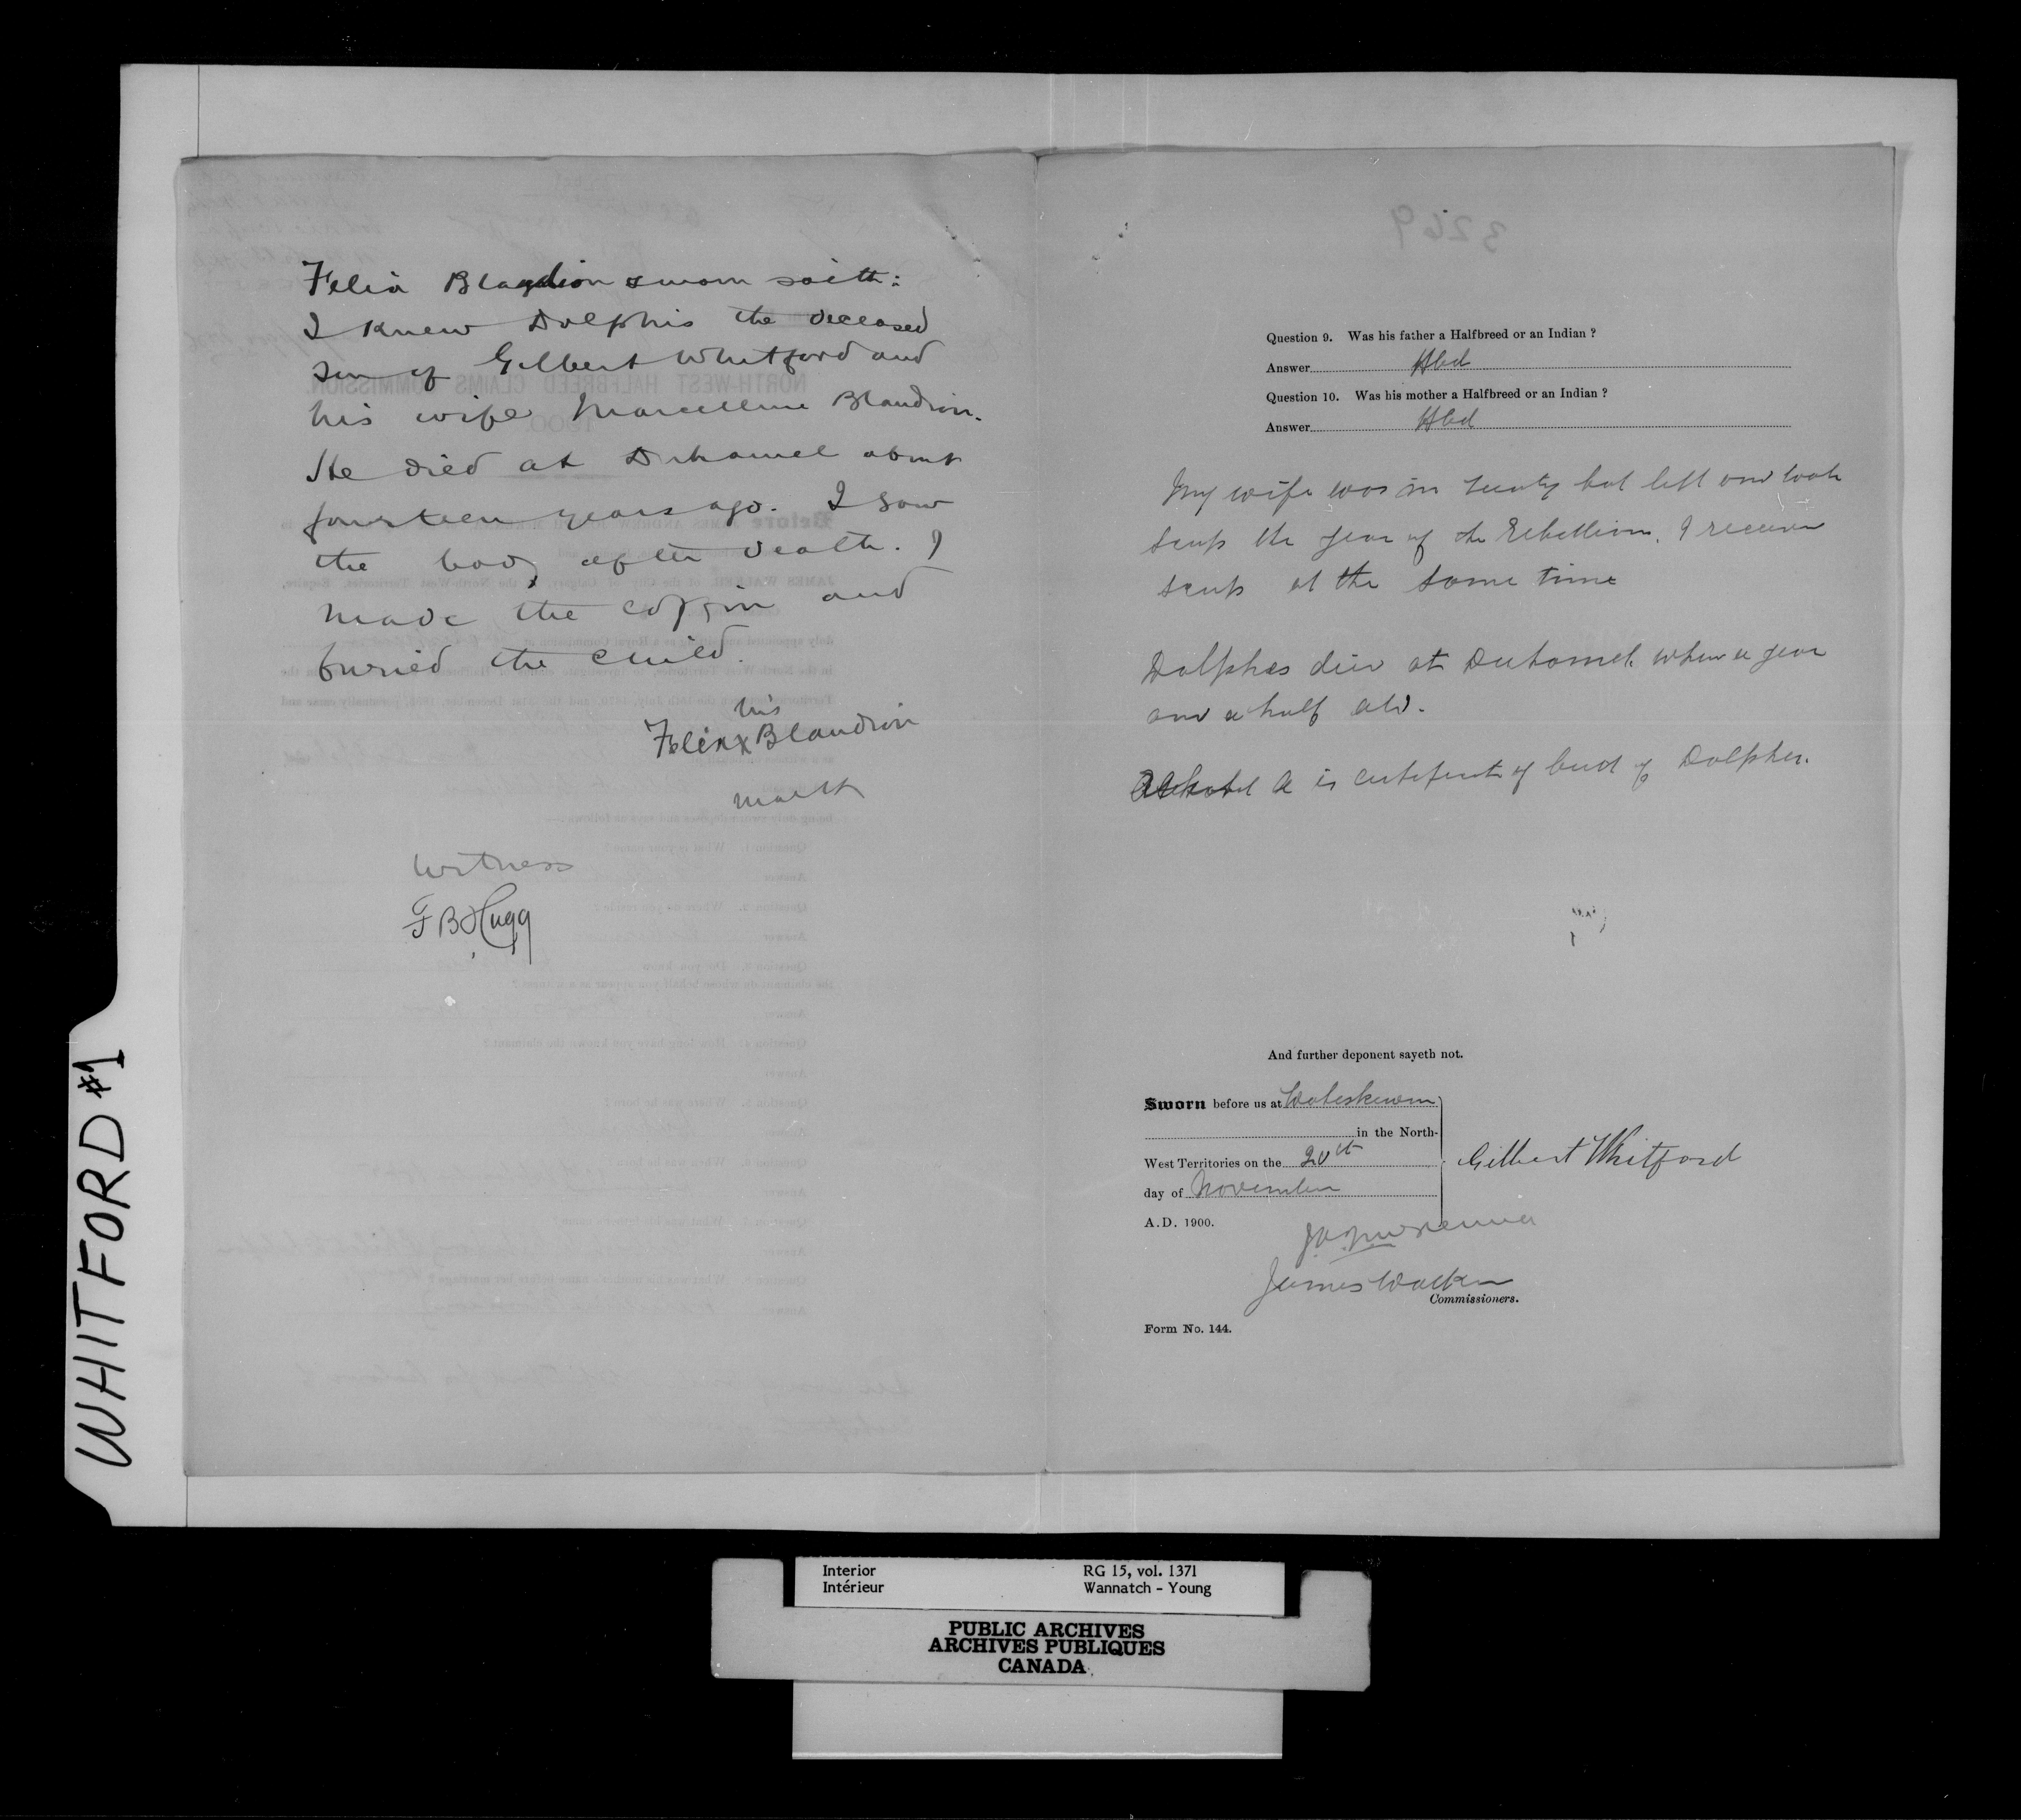 Felix Blandion sworn saith:
I knew Dolphis the deceased
son of Gilbert Whitford and
his wife Marcelline Blandion.
He died at Duhamel about
fourteen years ago. I saw
the body after death. I
made the coffin and
buried the child.
his
Felix x Blandion
mark
Witness
F B Hugg
3269
Question 9. Was his father a Halfbreed or an Indian ?
Answer Hbd
Question 10. Was his mother a Halfbreed or an Indian ?
Answer Hbd
My wife was in treaty but left and took
scrip the year of the Rebellion. I receiv
scrip at the same time
Dolphes died at Duhamel when a year
and a half old.
A is certificate of of Dolphes.
And further deponent sayeth not.
Sworn before us at Wetaskiwin
in the North-
West Territories on the 20th
day of November
A.D. 1900.
Gilbert Whitford
James Walker
Commissioners.
Form No. 144.
WHITFORD #1
Interior RG 15, vol. 1371
Intérieur Wannatch - Young
PUBLIC ARCHIVES
ARCHIVES PUBLIQUES
CANADA